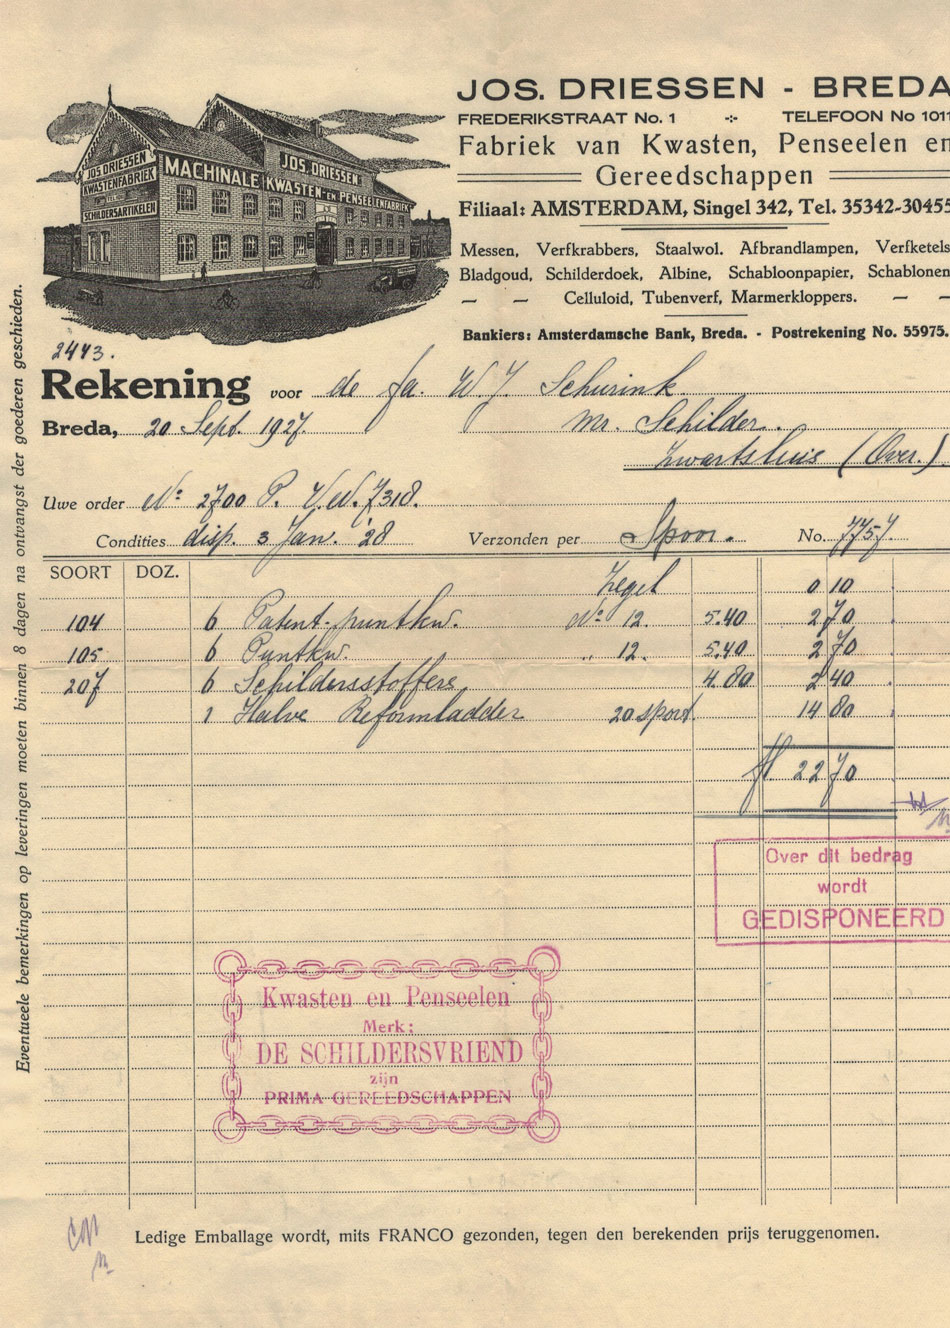 JOS. DRIESSEN - BREDA
FREDERIKSTRAAT No. 1 TELEFOON No 1011
Fabriek van Kwasten, Penseelen en
Gereedschappen
Filiaal: AMSTERDAM, Singel 342, Tel. 35342-30455
Messen, Verfkrabbers, Staalwol. Afbrandlampen, Verfketels
Bladgoud, Schilderdoek, Albine, Schabloonpapier, Schablonen
— — Celluloid, Tubenverf, Marmerkloppers. — —
Bankiers: Amsterdamsche Bank, Breda. - Postrekening No. 55975.
JOS. DRIESSEN
KWASTENFABRIEK
SCHILDERSARTIKELEN
MACHINALE
JOS. DRIESSEN
KWASTEN- EN PENSEELENFABRIEK
2443.
Rekening voor de fa. W. J. Schurink
Breda, 20 Sept. 1927. Mr. Schilder.
Zwartsluis (Over.)
Uwe order No 2700 P. V.W. 7318.
Condities disp. 3 Jan. '28 Verzonden per Spoor. No. 7757.
SOORT DOZ.
Zegel 0 10
104 6 Patent-puntkw. No 12. 5.40 2 70
105 6 Puntkw. „ 12. 5.40 2 70
207 6 Schildersstoffers 4.80 2 40
1 Halve Reformladder 20 sport 14 80
fl. 22 70
Over dit bedrag
wordt
GEDISPONEERD
Kwasten en Penseelen
Merk:
DE SCHILDERSVRIEND
zijn
PRIMA GEREEDSCHAPPEN
Ledige Emballage wordt, mits FRANCO gezonden, tegen den berekenden prijs teruggenomen.
Eventueele bemerkingen op leveringen moeten binnen 8 dagen na ontvangst der goederen geschieden.